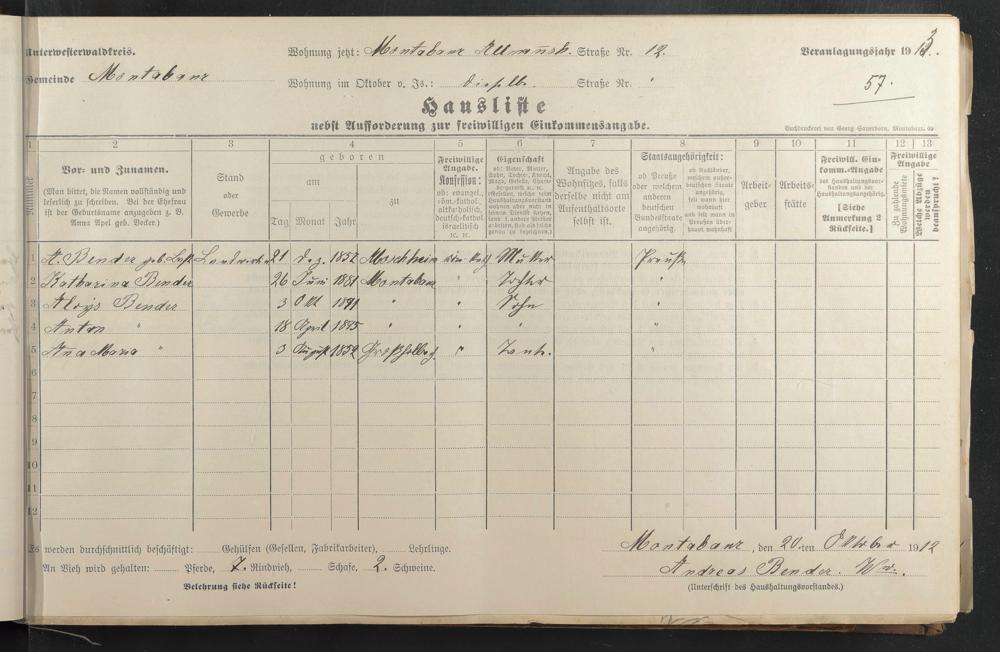 Unterwesterwaldkreis.
Wohnung jetzt: Montabaur Allmannsh. Straße Nr. 12.
Veranlagungsjahr 1913.
Gemeinde Montabaur
Wohnung im Oktober v. Js.: dieselbe Straße Nr. "
57.
Hausliste
nebst Aufforderung zur freiwilligen Einkommensangabe.
Buchdruckerei von Georg Sauerborn, Montabaur.
1 2 3 4 5 6 7 8 9 10 11 12 13
Nummer
Vor- und Zunamen.
(Man bittet, die Namen vollständig und
leserlich zu schreiben. Bei der Ehefrau
ist der Geburtsname anzugeben z. B.
Anna Apel geb. Becker.)
Stand
oder
Gewerbe
geboren
am
zu
Tag Monat Jahr
Freiwillige
Angabe.
Konfession:
ob: evangel.
röm.-kathol.
altkatholisch,
deutsch-kathol.
israelitisch
ꝛc. ꝛc.
Eigenschaft
Angabe des
Wohnsitzes, falls
derselbe nicht am
Aufenthaltsorte
selbst ist.
Staatsangehörigkeit:
ob Preuße
oder welchem
anderen
deutschen
Bundesstaate
angehörig.
ob Ausländer,
welchem außer-
deutschen Staate
angehörig,
seit wann hier
wohnhaft
und seit wann in
Preußen über-
haupt wohnhaft
Arbeit-
geber
Arbeits-
stätte
Freiwill. Ein-
komm.-Angabe
des Haushaltungsvor-
standes und der
Haushaltungsangehörig.
[Siehe
Anmerkung 2
Rückseite.]
Freiwillige
Angabe
Zu zahlende
Wohnungsmiete
Welche Abzüge
werden
beansprucht?
1 A. Bender geb. Landwirtin 21 Dez. 1852 Moschheim röm kath Mutter Preuße
2 Katharina Bender 26 Juni 1881 Montabaur " Tochter "
3 Aloys Bender 3 Okt 1891 " " Sohn "
4 Anton " 18 April 1895 " " " "
5 Anna Maria " 3 August 1852 Großholbach " Tante "
6
7
8
9
10
11
12
Es werden durchschnittlich beschäftigt: Gehülfen (Gesellen, Fabrikarbeiter), Lehrlinge.
An Vieh wird gehalten: Pferde, 7. Rindvieh, Schafe, 2. Schweine.
Belehrung siehe Rückseite!
Montabaur, den 20.ten Oktober 1912
Andreas Bender. Ww.
(Unterschrift des Haushaltungsvorstandes.)